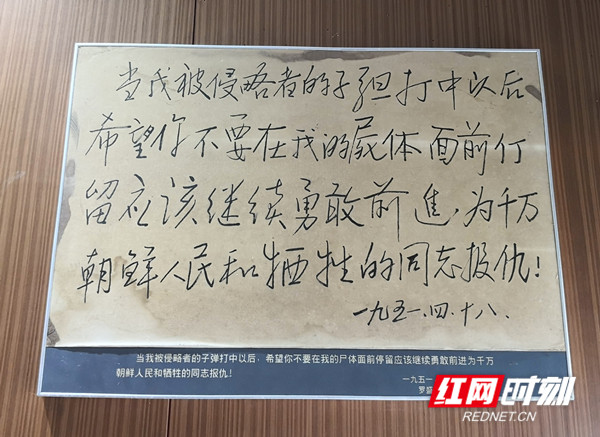 当我被侵略者的子弹打中以后
希望你不要在我的屍体面前停
留应该继续勇敢前進为千万
朝鲜人民和牺牲的同志报仇!
一九五一.四.十八.
当我被侵略者的子弹打中以后,希望你不要在我的尸体面前停留应该继续勇敢前进为千万
朝鲜人民和牺牲的同志报仇!
一九五一
罗盛
红网时刻
REDNET.CN